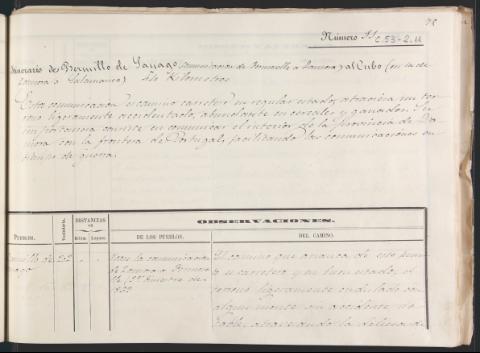 Número 11 C.53-2.11
Itinerario de Bermillo de Sayago (comunicacion de Fermoselle a Zamora) al Cubo (en la de
Zamora a Salamanca) 44 Kilometros
Esta comunicacion es camino carretero en regular estado, atraviesa un ter-
reno ligeramente accidentado, abundante en cereales y ganados. Su
importancia consiste en comunicar el interior de la provincia de Za-
mora con la frontera de Portugal, facilitando las comunicaciones en
tiempo de guerra.
PUEBLOS. Vecindario. DISTANCIAS EN Kilóm. Leguas. OBSERVACIONES. DE LOS PUEBLOS. DEL CAMINO.
Bermillo de
Sayago
212
Véase la comunicacion
de Zamora a Fermose-
lle
El camino que arranca de este pun-
to es carretero y en buen estado, el
terreno ligeramente ondulado con
algun monte sin accidente no-
table, atravesando la dehesa de